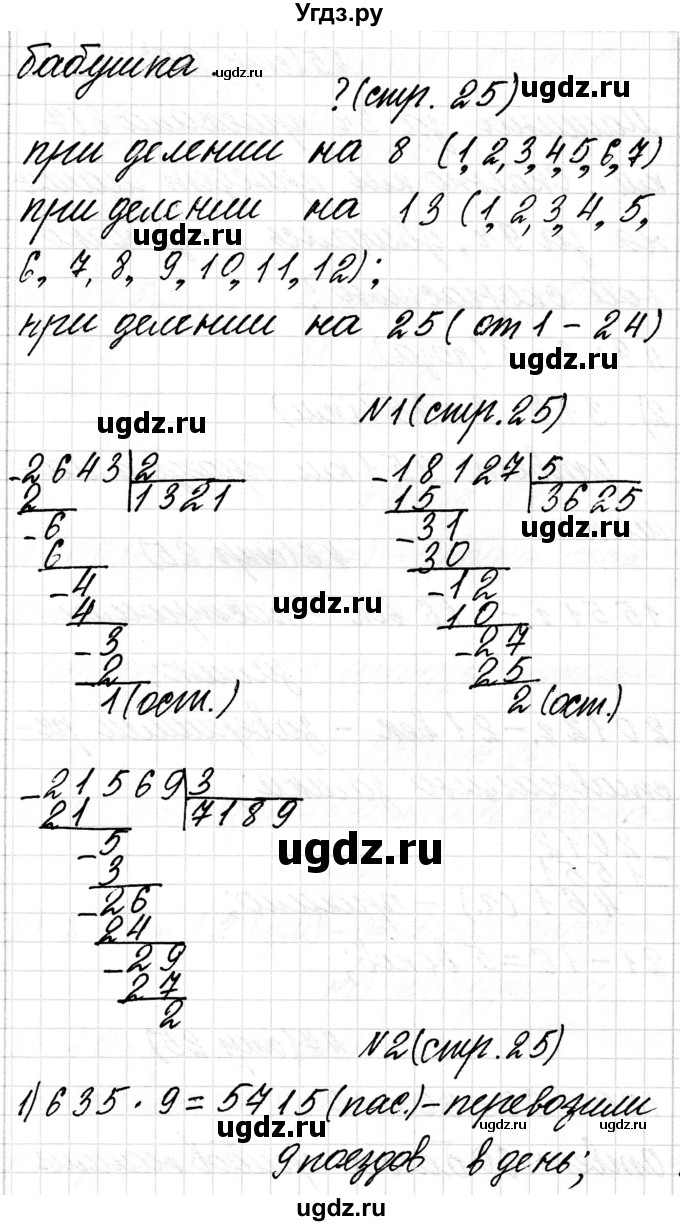 Угдз.ру
бабушка .ugdz.ru
?(стр. 25) ugdz.ru
при делении на 8 (1,2,3,4,5,6,7)
при делении на 13 (1,2,3,4,5,
ugdz.ru
6, 7, 8, 9,10,11,12);
при делении на 25(от 1 - 24)
ugdz.ru
ugdz.ru №1(стр.25)
-2643|2 -18127|5
2 1321 15 3625
-6 -31 ugdz.ru
6 30
-4 -12
4 ugdz.ru 10
-3 -27
2 25
1(ост.) 2(ост.)
-21569|3
21 7189
-5 ugdz.ru
3
-26
24
-29
27
2
№2(стр.25)
1) 635 · 9 = 5715(пас.)-перевозили
ugdz.ru ugdz.ru ugdz.ru
9 поездов в день;
ugdz.ru